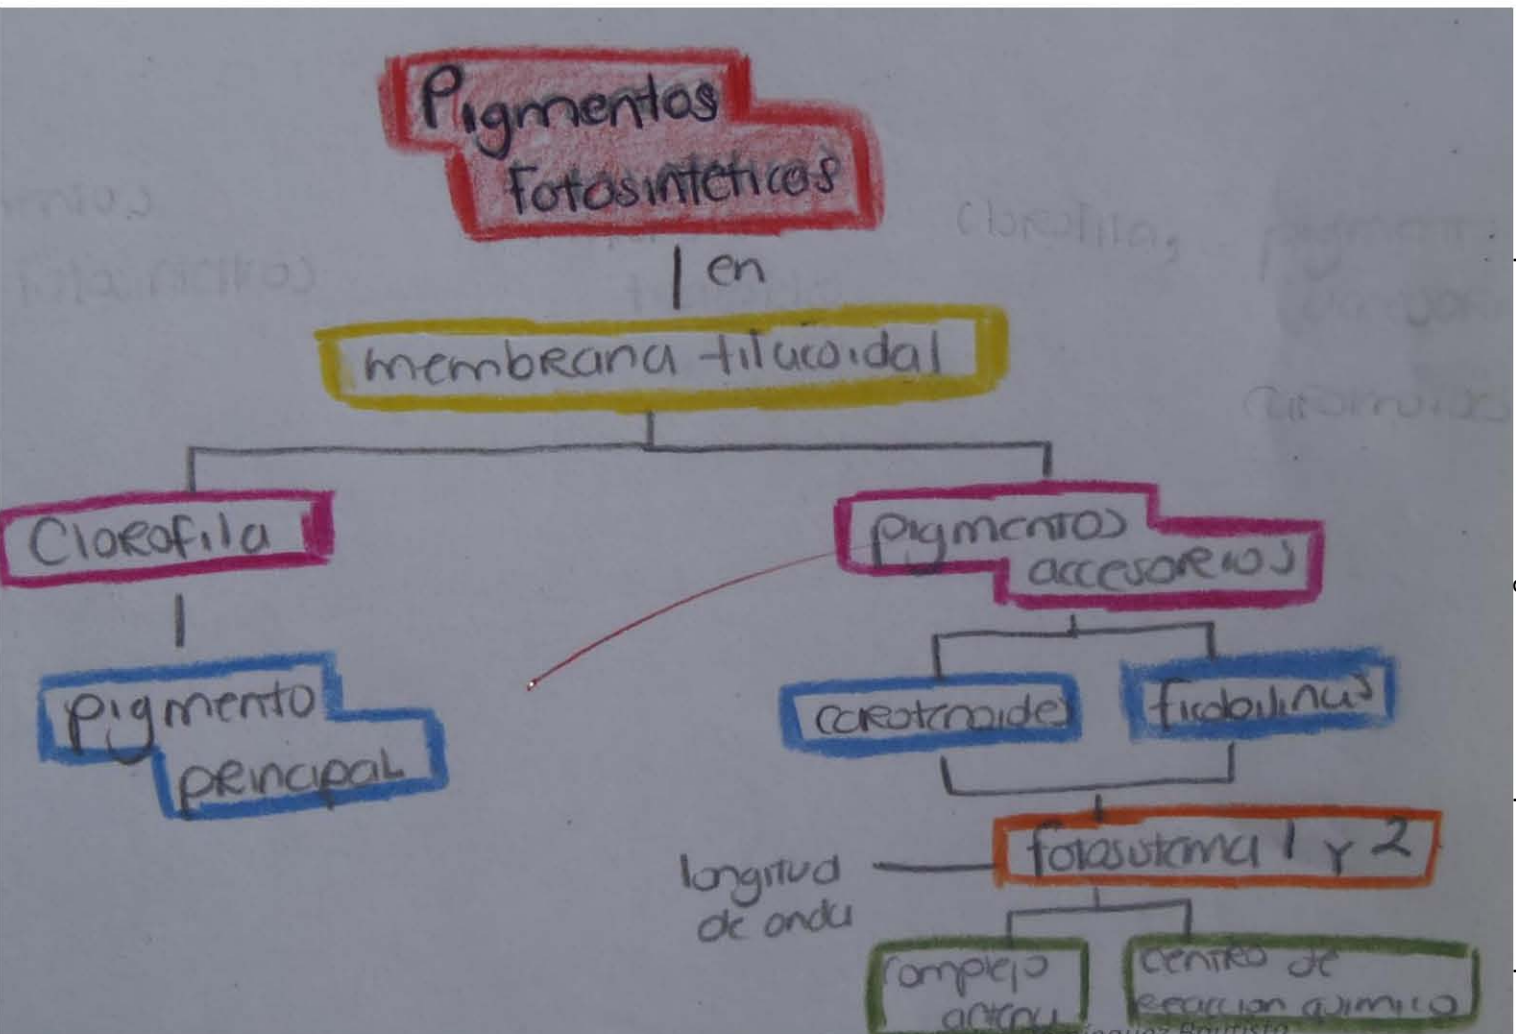 Pigmentos
Fotosintéticos
en
membrana tilacoidal
Clorofila
pigmentos
accesorios
pigmento
principal
carotenoides
ficobilinas
fotosistema 1 y 2
longitud
de onda
complejo
antena
centro de
reaccion quimico
clorofila,